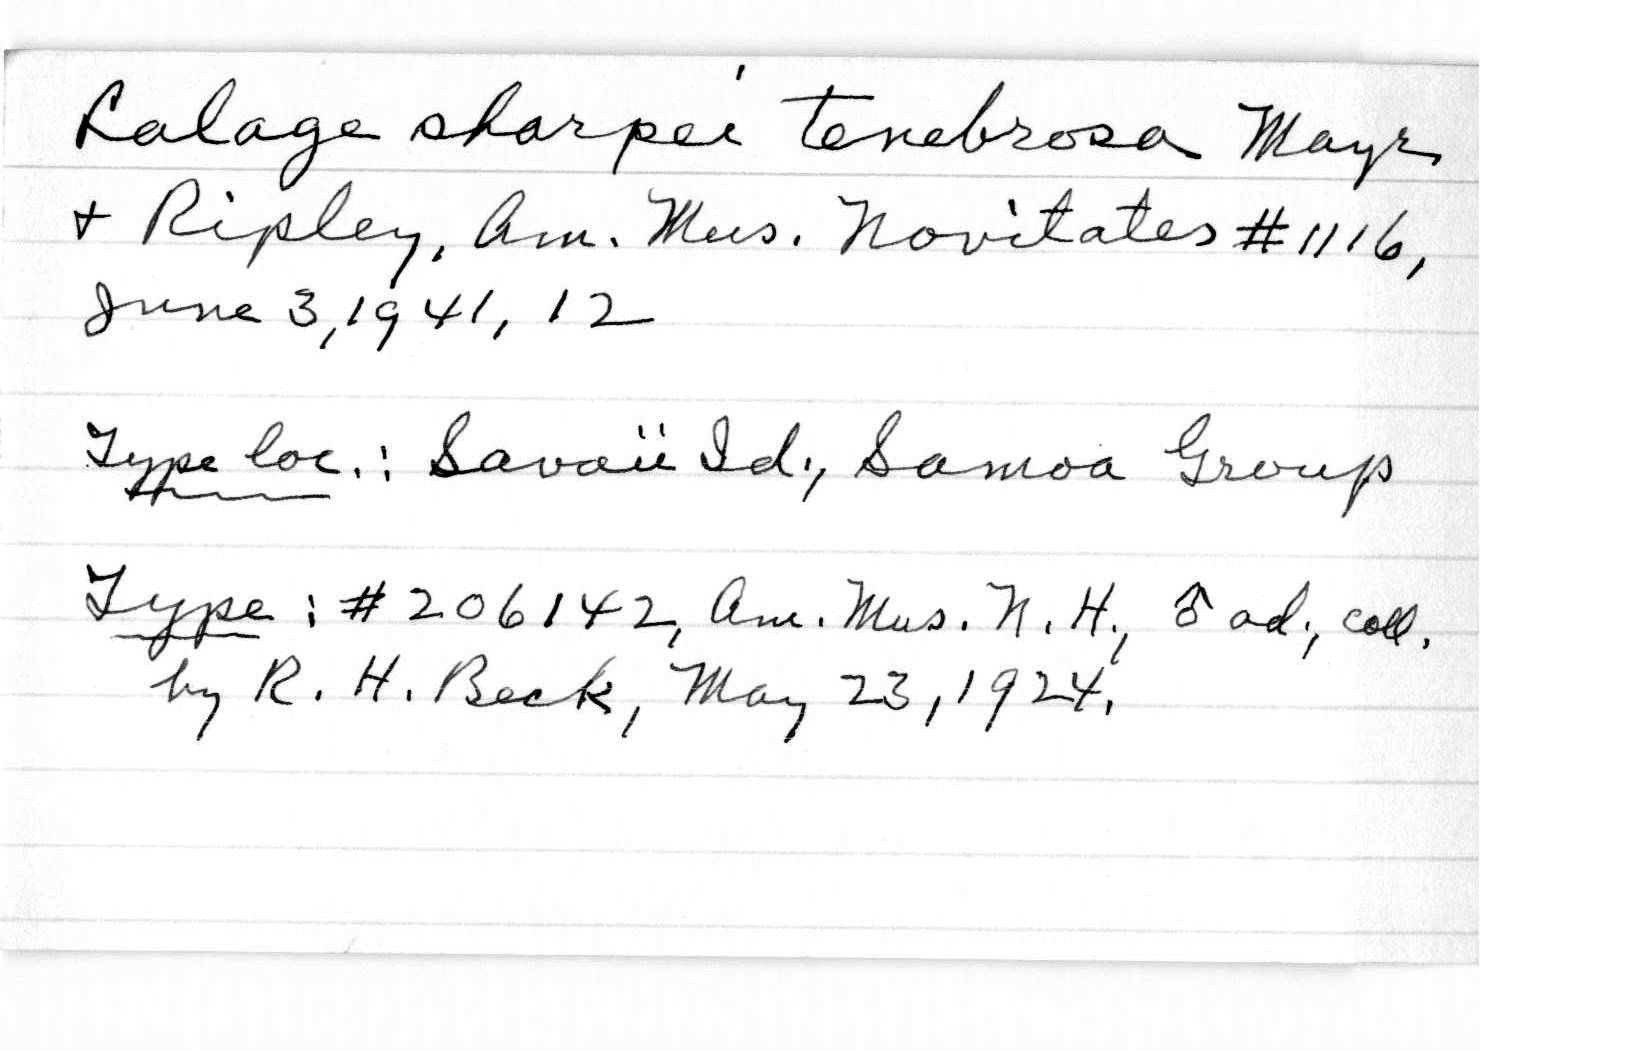 Lalage sharpei tenebrosa Mayr
+ Ripley, Am. Mus. Novitates #1116,
June 3, 1941, 12
Type loc.: Savaii Id., Samoa Group
Type: #206142, Am. Mus. N. H., ♂ ad., coll.
by R. H. Beck, May 23, 1924.